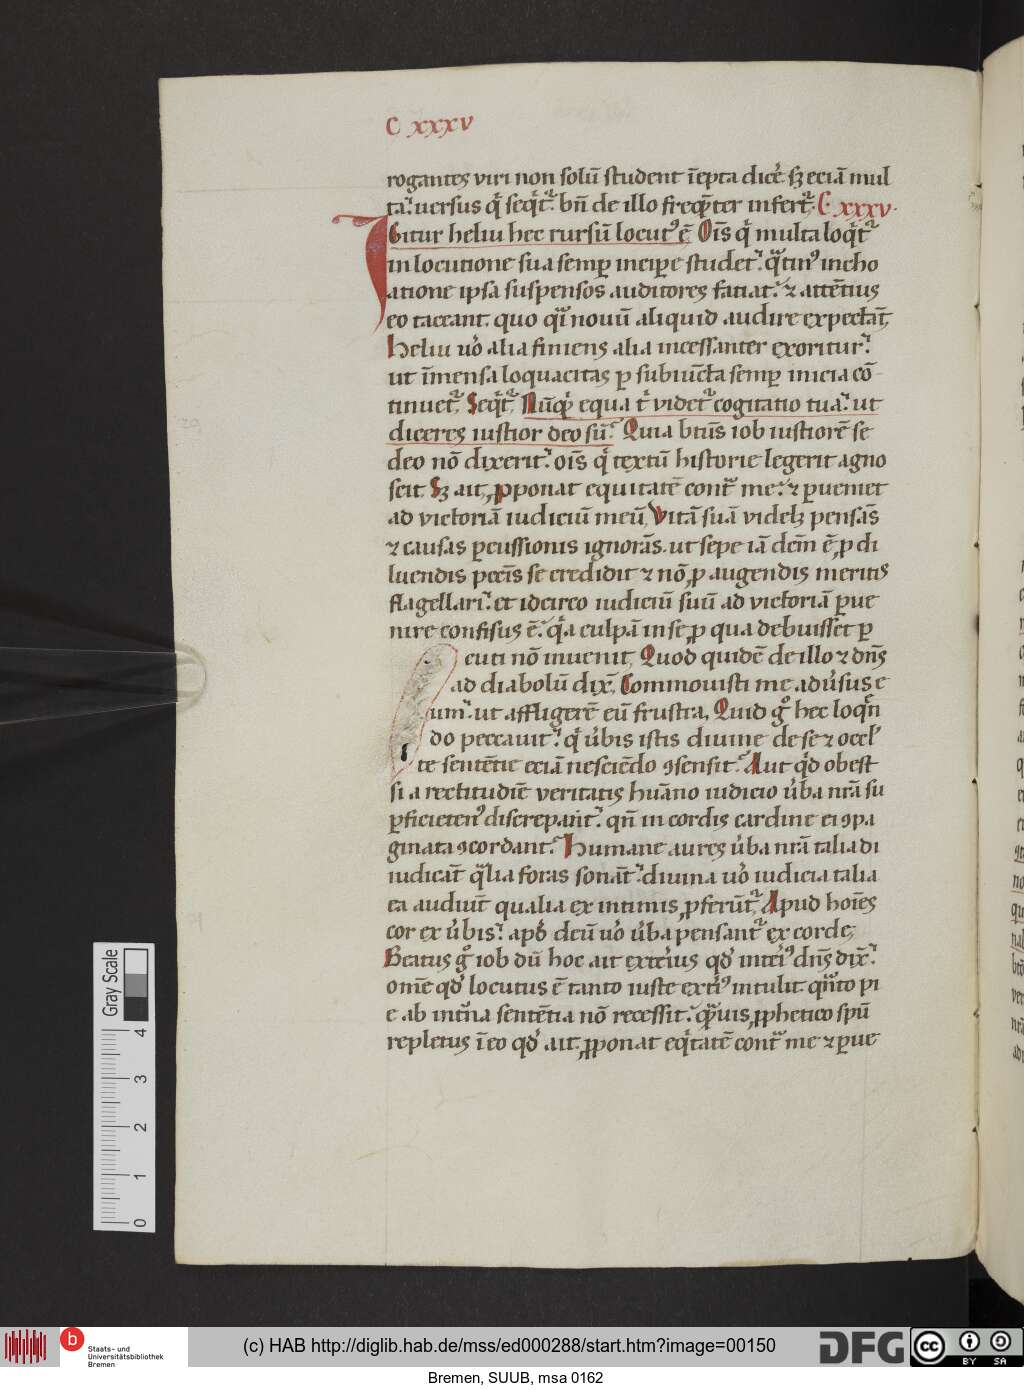 C xxxv
rogantes viri non solū student īepta dicē. sꝫ eciā mul
ta. uersus q̇ seqͥt᷑. bn̄ de illo freqͣ̄ter infert᷑. C xxxv.
Igitur heliu hec rursū locutꝰ ē. Oīs q̇ multa loqͥt᷑
in locutione sua semꝑ incipe studet. qͣtinꝰ incho
atione ipsa suspensos auditores faciat. ⁊ attētius
eo taceant. quo qͣi nouū aliquid audire expectāt.
Heliu u̇o alia finiens alia incessanter exoritur.
ut īmensa loquacitas ꝑ subiūcta semꝑ inicia cō-
tinuet᷑. Seqͥt᷑. Nūqͥd equa t̄ videt᷑ cogitatio tua. ut
diceres iustior deo sū. Quia btūs iob iustiorē se
deo nō dixerit. oīs q̇ textū historie legerit agno
scit. Sꝫ ait, ꝓponat equitatē contͣ me. ⁊ ꝑueniet
ad victoriā iudiciū meū, Vitā suā videlꝫ pensās
⁊ causas ꝑcussionis ignorās. ut sepe iā dcm̄ ē, ꝓ di
luendis pccīs se credidit ⁊ nō, ꝓ augendis meritis
flagellari. et idcirco iudiciū suū ad victoriā ꝑue
nire confisus ē. qͥa culpā in se, ꝓ qua debuisset ꝑ
cuti nō inuenit. Quod quidē de illo ⁊ dn̄s
ad diabolū dix̄. Commouisti me adu̇sus e
um. ut affligerē eū frustra. Quid gͦ hec loqn̄
do peccauit. q̇ u̇bis istis diuine de se ⁊ occl̓
te sentētie eciā nesciēdo ꝯsensit. Aut qͥd obest
si a rectitudiē veritatis huāno iudicio u̇ba nrā su
ꝑficietenꝰ discrepant. qn̄ in cordis cardine ei ꝯpa
ginata ꝯcordant. Humane aures u̇ba nrā talia di
iudicāt qͣlia foras sonāt. diuina u̇o iudicia talia
ea audiūt qualia ex intimis, ꝓferūt᷑. Apud hoīes
cor ex u̇bis. apđ deū u̇o u̇ba pensant᷑ ex corde;
Beatus gͦ iob dū hoc ait exterius qđ int̄iꝰ dn̄s dix̄.
om̄e qđ locutus ē tanto iuste ext̄iꝰ intulit. qͣnto pi
e ab int̄na sentētia nō recessit. qͣuis, ꝓphetico sp̄u
repletus ī eo qđ ait, ꝓponat eqͥtatē contͣ me ⁊ ꝑue
Gray Scale
4
3
2
1
0
b
Staats- und
Universitätsbibliothek
Bremen
(c) HAB http://diglib.hab.de/mss/ed000288/start.htm?image=00150
DFG
cc
BY SA
Bremen, SUUB, msa 0162